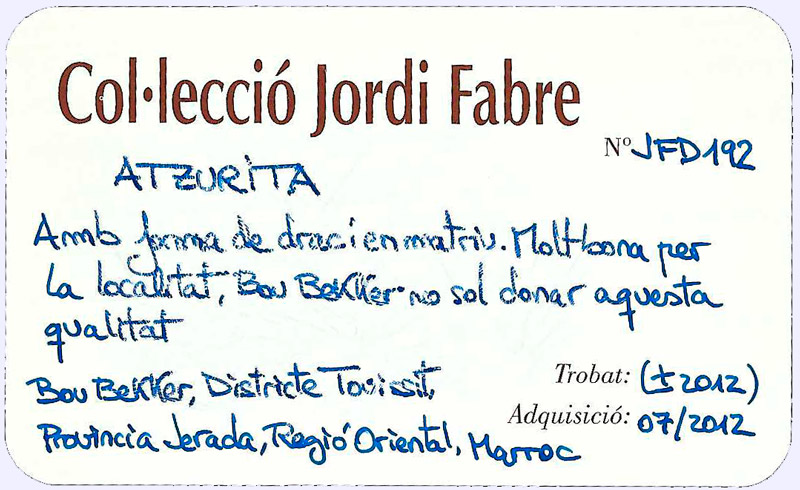 Col·lecció Jordi Fabre
Nº JFD192
ATZURITA
Amb forma de drac i en matriu. Molt bona per
la localitat, Bou Bekker no sol donar aquesta
qualitat
Bou Bekker, Districte Touissit,
Província Jerada, Regió Oriental, Marroc
Trobat: (± 2012)
Adquisició: 07/2012